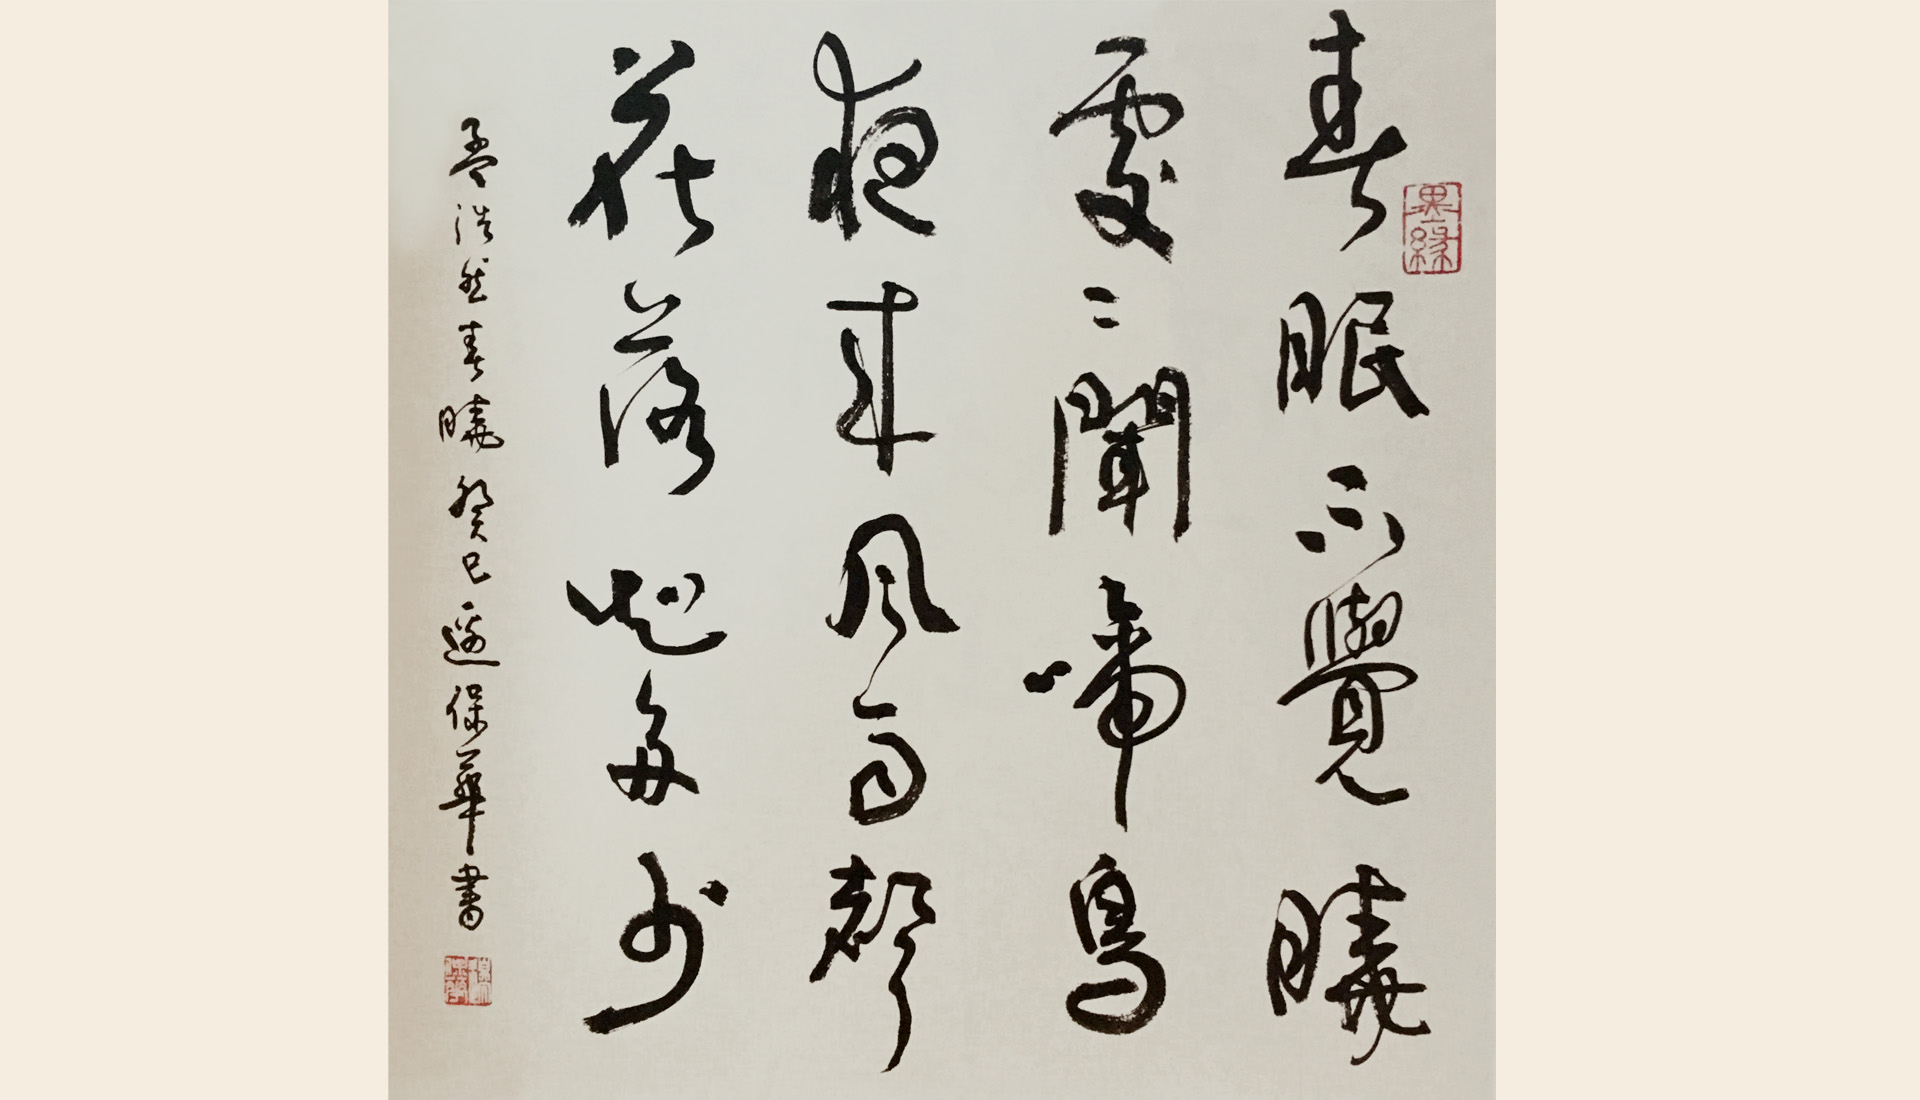 墨緣
春眠不覺曉
處々聞啼鳥
夜来风雨聲
花落知多少
孟浩然春曉癸巳邊保華書